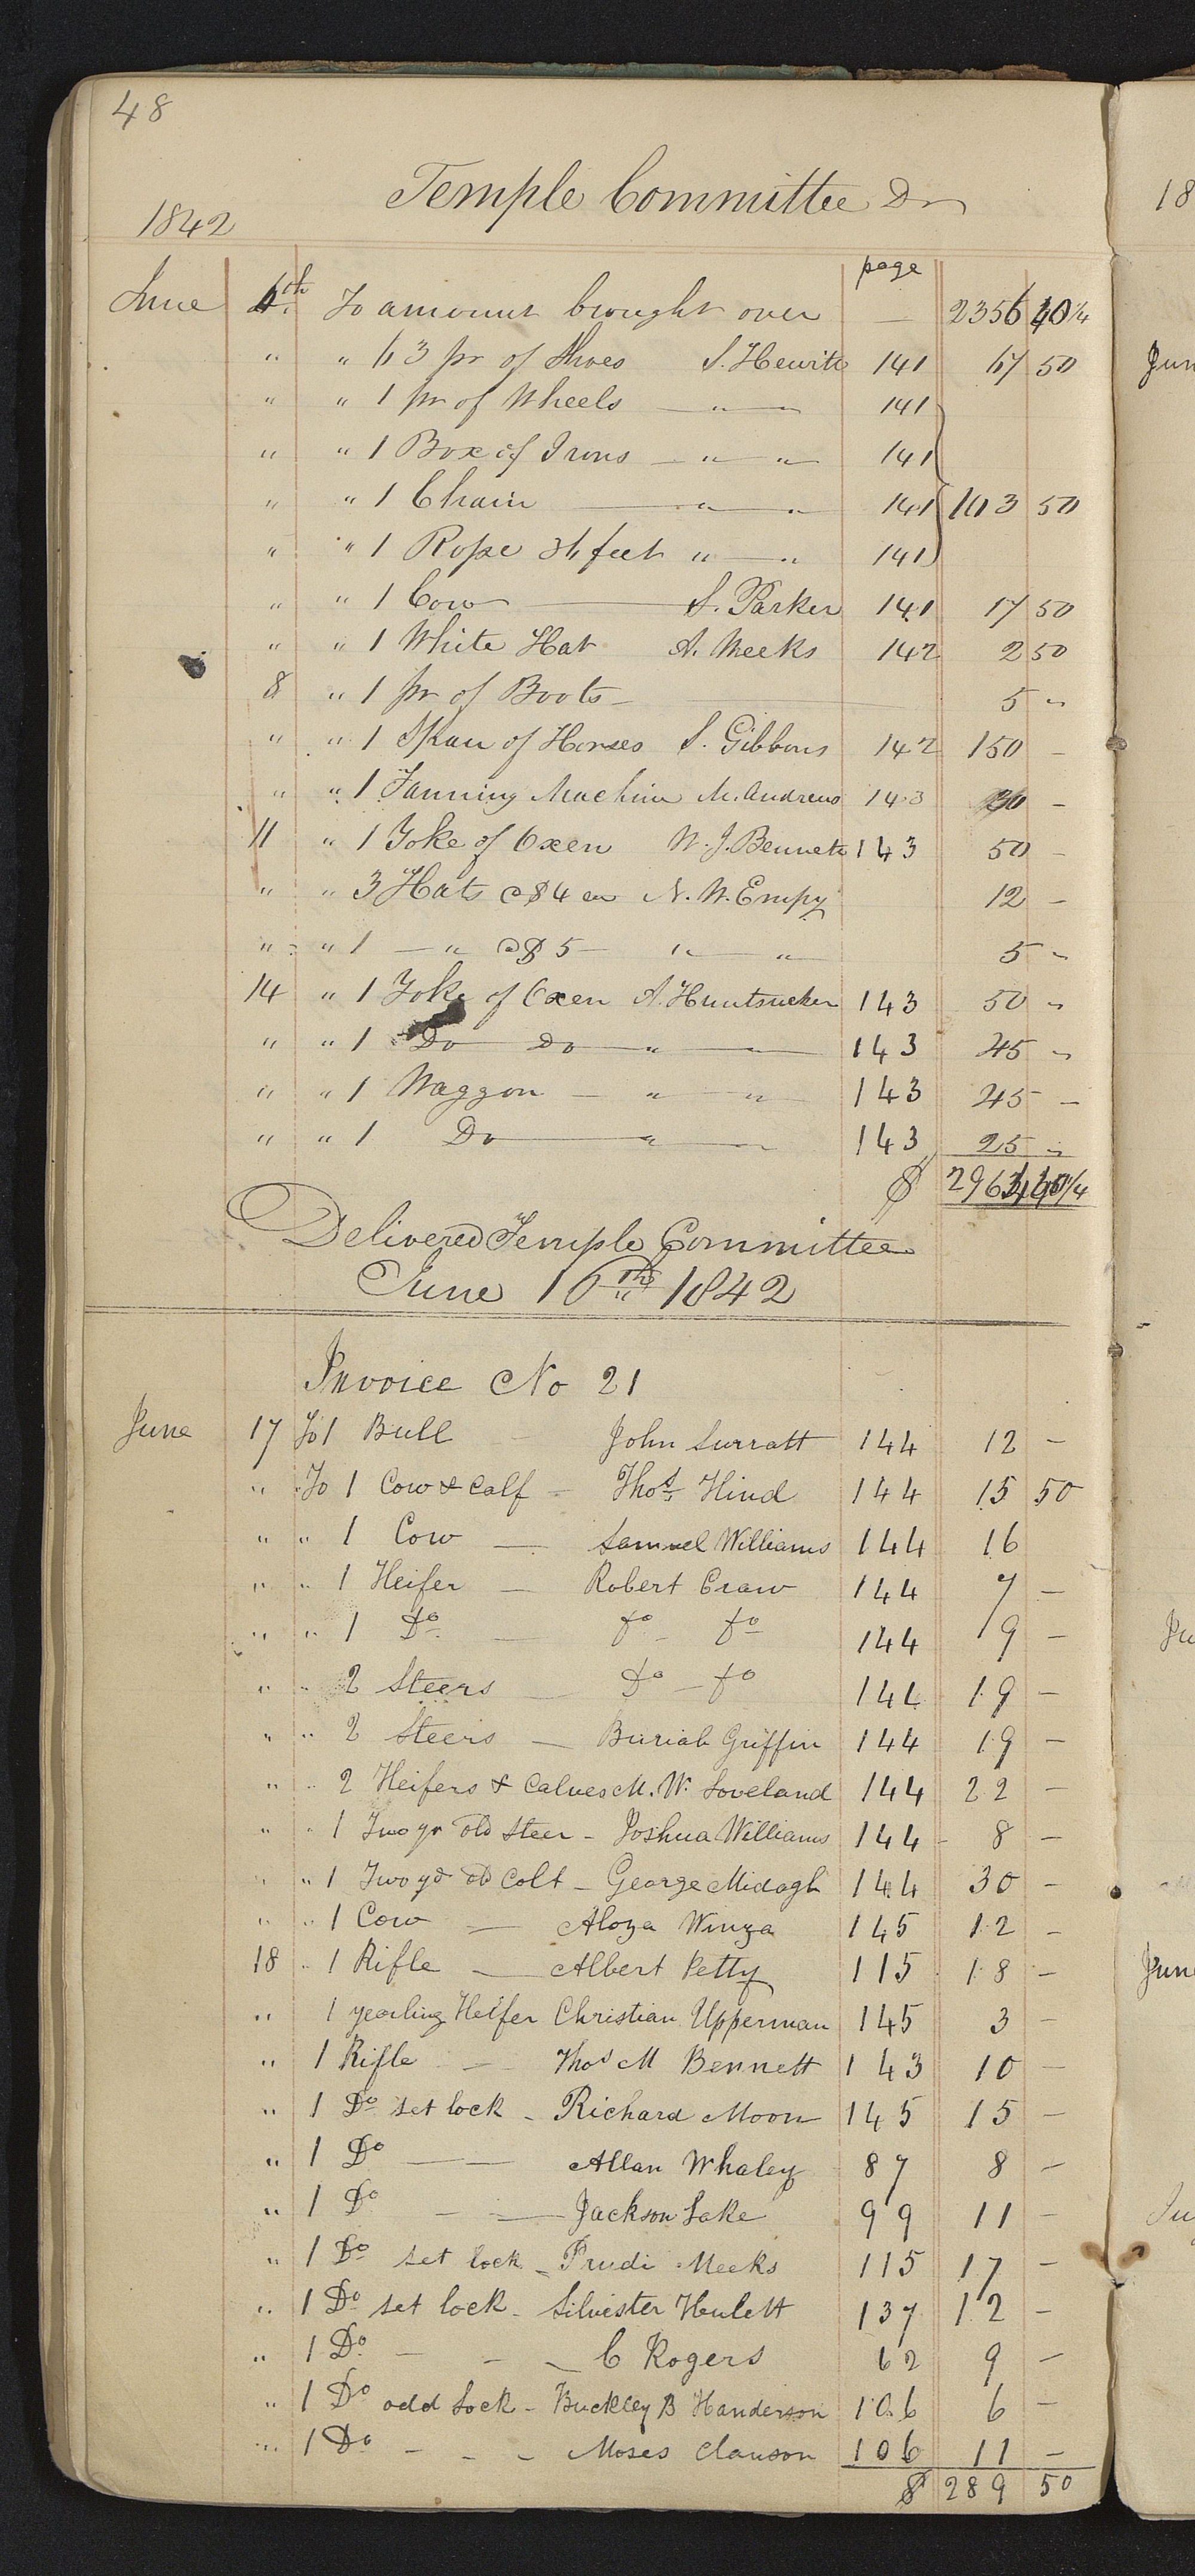 48
Temple Committee Dr
1842
page
June 6th. To amount brought over — 2356
" " 63 pr of Shoes S. Hewitt 141 67 50
" " 1 pr of Wheels — " — 141
" " 1 Box of Irons — " " 141
" " 1 Chain — " " 141 103 50
" " 1 Rope 36 feet " — " 141
" " 1 Cow — S. Parker 141 17 50
" " 1 White Hat A. Meeks 142 2 50
8 " 1 pr of Boots — 5 "
" " 1 Span of Horses S. Gibbons 142 150 —
" " 1 Fanning Machine M. Andrews 143 —
11 " 1 Yoke of Oxen W. J. Bennett 143 50 —
" " 3 Hats @ $4 ea N. W. Empy 12 —
" " 1 — " @ $5 — " — " 5 "
14 " 1 Yoke of Oxen A. Huntsucker 143 50 "
" " 1 Do Do — " — 143 45 "
" " 1 Waggon — " " 143 45 —
" " 1 Do — " — 143 25 "
$
Delivered Temple Committee
June 16th 1842
Invoice No 21
June 17 To 1 Bull — John Surratt 144 12 —
" To 1 Cow & Calf — Thos. Hind 144 15 50
" " 1 Cow — Samuel Williams 144 16
" " 1 Heifer — Robert Craw 144 7 —
" " 1 Do. — do — do 144 9 —
" " 2 Steers — do — do 144 19 —
" " 2 Steers — Buriah Griffin 144 19 —
" " 2 Heifers & Calves M. W. Loveland 144 22 —
" " 1 Two yr old Steer — Joshua Williams 144 8 —
" " 1 Two yd old Colt — George Midagh 144 30 —
" " 1 Cow — Aloza Winza 145 12 —
18 " 1 Rifle — Albert Petty 115 18 —
" 1 yearling Heifer Christian Upperman 145 3 —
" 1 Rifle — Thos M Bennett 143 10 —
" 1 Do set lock — Richard Moon 145 15 —
" 1 Do — Allan Whaley 87 8 —
" 1 Do — — Jackson Lake 99 11 —
" 1 Do set lock — Prudi Meeks 115 17 —
" 1 Do set lock — Silvester Hulett 137 12 —
" 1 Do. — — — C Rogers 62 9 —
" 1 Do odd Lock — Buckley B Handerson 106 6 —
" 1 Do — — — Moses Clawson 106 11 —
$ 289 50